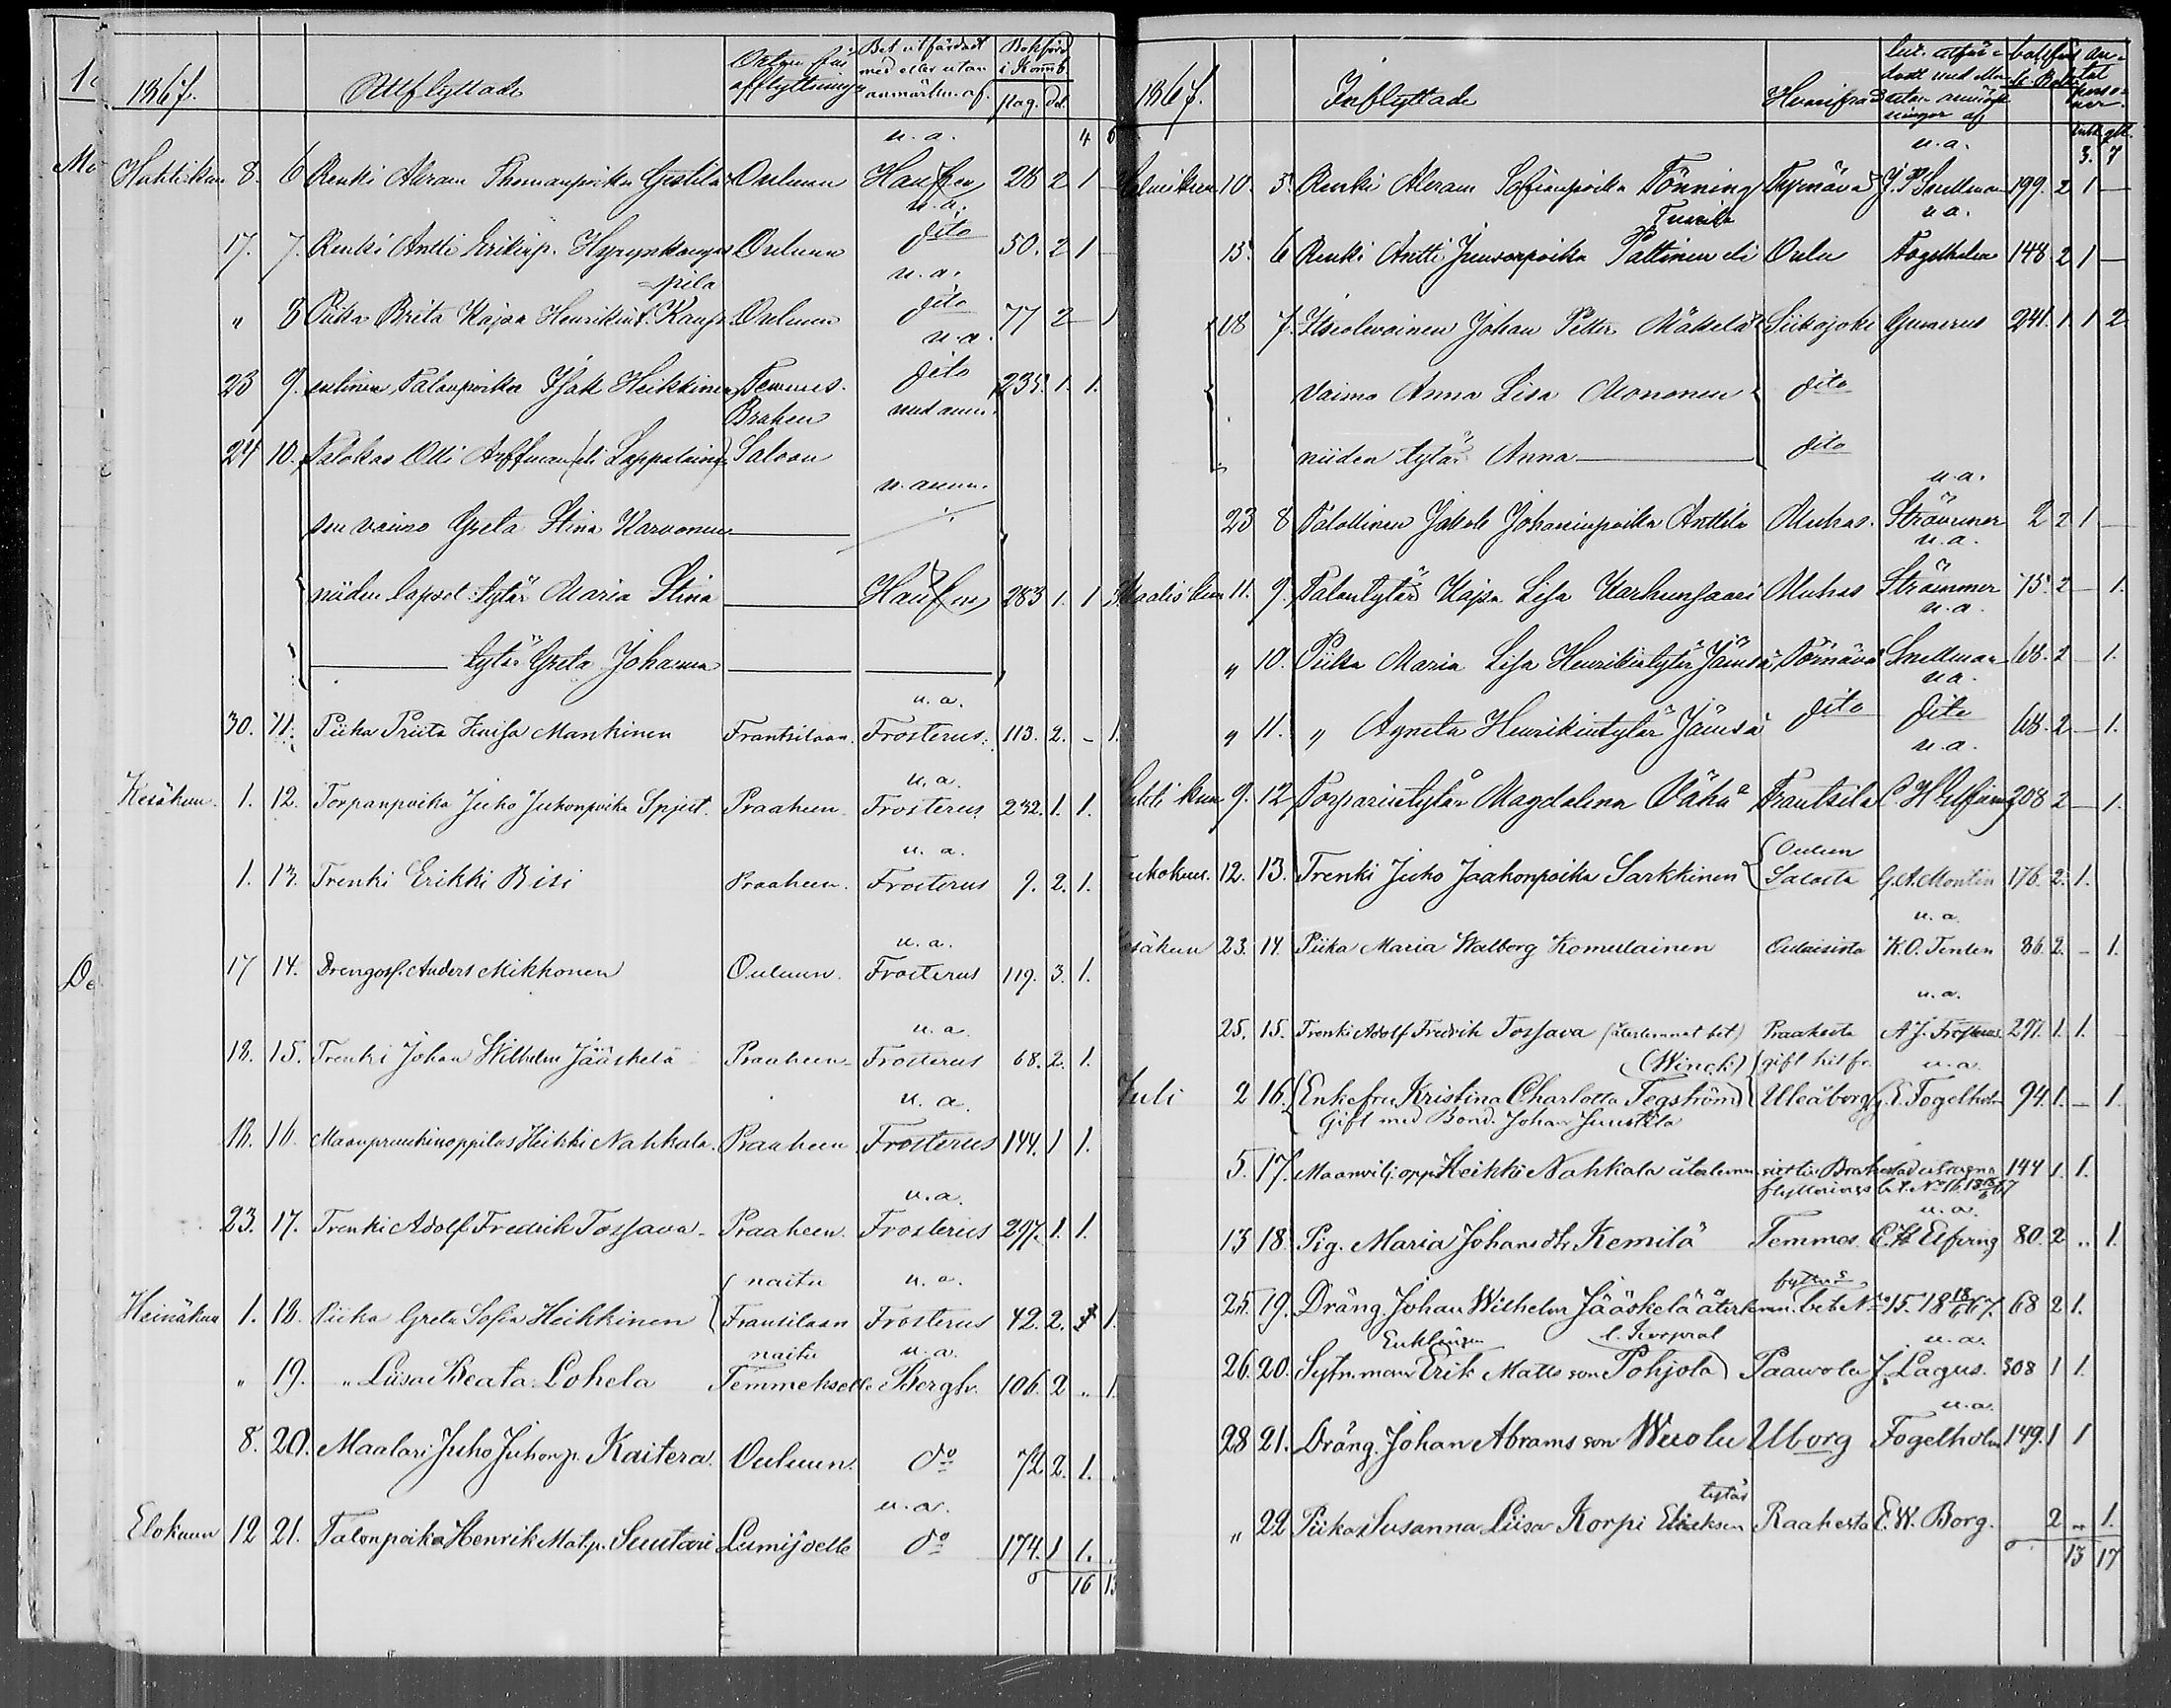 1867. Utflyttade Orten för afflyttningen Bet utfärdadt med eller utan anmärkn. af. Bokförd i Kommb. pag. del
4
u. a.
Huhtikuu 8. 6 Renki Abram Thomanpoika Ouluun 28 2 1 —
u. a.
17. 7. Renki Antti Erikinp. Ouluun dito 50. 2 1 —
pila u. a.
" 8 Piika Brita Kajsa Henrikint. Ouluun dito 77 2 — 1
u. a.
23 9. Talonpoika Isak Heikkinen Temmes. dito 235. 1. 1.
Brahen
24 10. Olli (eli Lappalainen) Saloon
sen vaimo Greta Stina Karvonen ———
niiden lapset tytär Maria Stina ——— 283 1. 1
——— tytär Greta Johanna ——— ———
u. a.
30. 11. Piika Priita Kaisa Mankinen Frantsilaan. Frosterus. 113. 2. - 1.
u. a.
Kesäkuu. 1. 12. Torpanpoika Juho Juhonpoika Praaheen. Frosterus 232. 1. 1.
u. a.
1. 13. Trenki Erikki Bisi Praaheen. Frosterus 9. 2. 1.
u. a.
17 14. Drengoss. Anders Mikkonen Ouluun. Frosterus 119. 3. 1.
u. a.
18. 15. Trenki Johan Wilhelm Jääskelä Praaheen Frosterus 68. 2. 1.
u. a.
18. 16. Maanpruukinoppilas Heikki Nahkala. Praaheen Frosterus 144. 1 1.
u. a.
23. 17. Trenki Adolf Fredrik Tossava. Praaheen. Frosterus 297. 1. 1.
naitu u. a.
Heinäkuu 1. 18. Piika Greta Sofia Heikkinen Fransilaan Frosterus 42. 2. 1.
naitu u. a.
" 19. " Liisa Beata Lohela Temmekselle Bergh. 106. 2 " 1
8. 20. Maalari Juho Juhonp. Kaitera. Ouluun. do 72 2. 1.
u. a.
Elokuun 12 21. Talonpoika Henrik Mat.p. Suutari Lumijoelle do 174. 1 1.
16 13
1867. Inflyttade Hvarifrån
u. a. 3. 7
10. 5. Renki Abram Sofianpoika Tönning Tyrnävä J. Snellman 199. 2 1 —
u. a.
15. 6 Renki Antti Juusonpoika Pattinen eli Oulu Fogelholm 148 2 1 —
18 7. Itseolevainen Johan Petter Mäkelä Siikajoki Gumerus 241. 1. 1 2
Vaimo Anna Lisa Mononen dito
niiden tytär Anna ——— dito
u. a.
23 8 Talollinen Jakob Johaninpoika Anttila Muhos. Strömmer 2 2 1 —
u. a.
Maaliskuu 11. 9. Talontytär Kajsa Lisa Karhunsaari Muhos Strömmer 75. 2 — 1.
u. a.
" 10. Piika Maria Lisa Henrikintytär Jämsä, Törnävä Snellman 68. 2 — 1.
u. a.
" 11. " Agneta Henrikintytär Jämsä dito dito 68. 2 — 1.
u. a.
Huhtikuu 9. 12 Torparintytär Magdalena Vähä Frantsila C. H Elfving 208 2 — 1.
Oulun
Toukokuu. 12. 13. Trenki Juho Jaakonpoika Sarkkinen Salosta G. A. Montin 176. 2. 1.
u. a.
Kesäkuu 23. 14. Piika Maria Walborg Komulainen Oulaisista K. O. Tenlen 86. 2. - 1.
u. a.
25. 15. Trenki Adolf Fredrik Tossava (återlemnat bet) Praahesta A J. Frosterus 297. 1. 1.
(Winck) gift hitfr. u. a.
Juli 2 16. Enkefru Kristina Charlotta Tegström Uleåborg E. Fogelholm 94. 1. - 1.
Gift med Bond. Johan Juustila
5. 17. Maanvilj. opp. Heikki Nahkala återlemn. sist. Brahestad uttagna 144 1. 1.
flyttnings bet. No 16. 18 18/6 67
u. a.
13 18. Pig. Maria Johansdtr Kemilä Temmes C. H Elfving 80. 2 " 1.
flyttn.
25. 19. Dräng. Johan Wilhelm Jääskelä återlemn. bet No 15. 18 18/6 67. 68 2 1.
Enklingen f. Korpral u. a.
26. 20. Sytn.man Erik Matts son Pohjola Paavola J. Lagus. 308 1 1.
u. a.
28 21. Dräng. Johan Abrams son Wuolu Uborg Fogelholm 149. 1 1
tytär
" 22 Piika Susanna Liisa Korpi Eliaksen Raahesta E. W. Borg. 2 " 1.
13 17